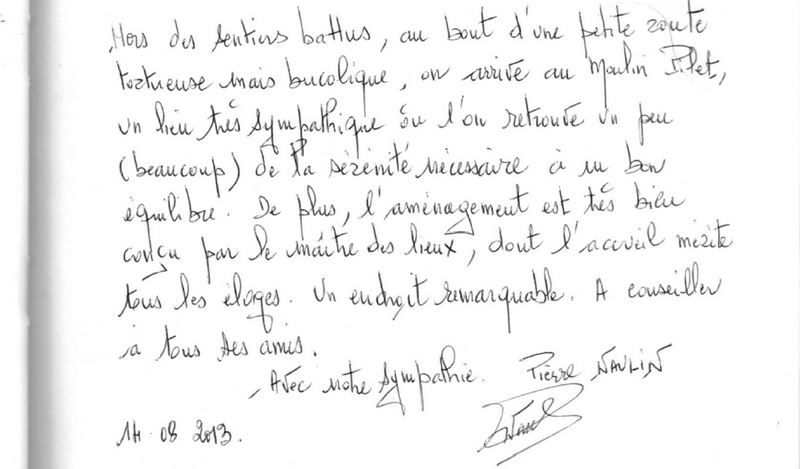 Hors des sentiers battus, au bout d'une petite route
tortueuse mais bucolique, on arrive au Moulin Pilet,
un lieu très sympathique où l'on retrouve un peu
(beaucoup) de la sérénité nécessaire à un bon
équilibre. De plus, l'aménagement est très bien
conçu par le maître des lieux, dont l'accueil mérite
tous les éloges. Un endroit remarquable. A conseiller
à tous ses amis.
Avec notre sympathie. Pierre NAULIN
14 08 2013.